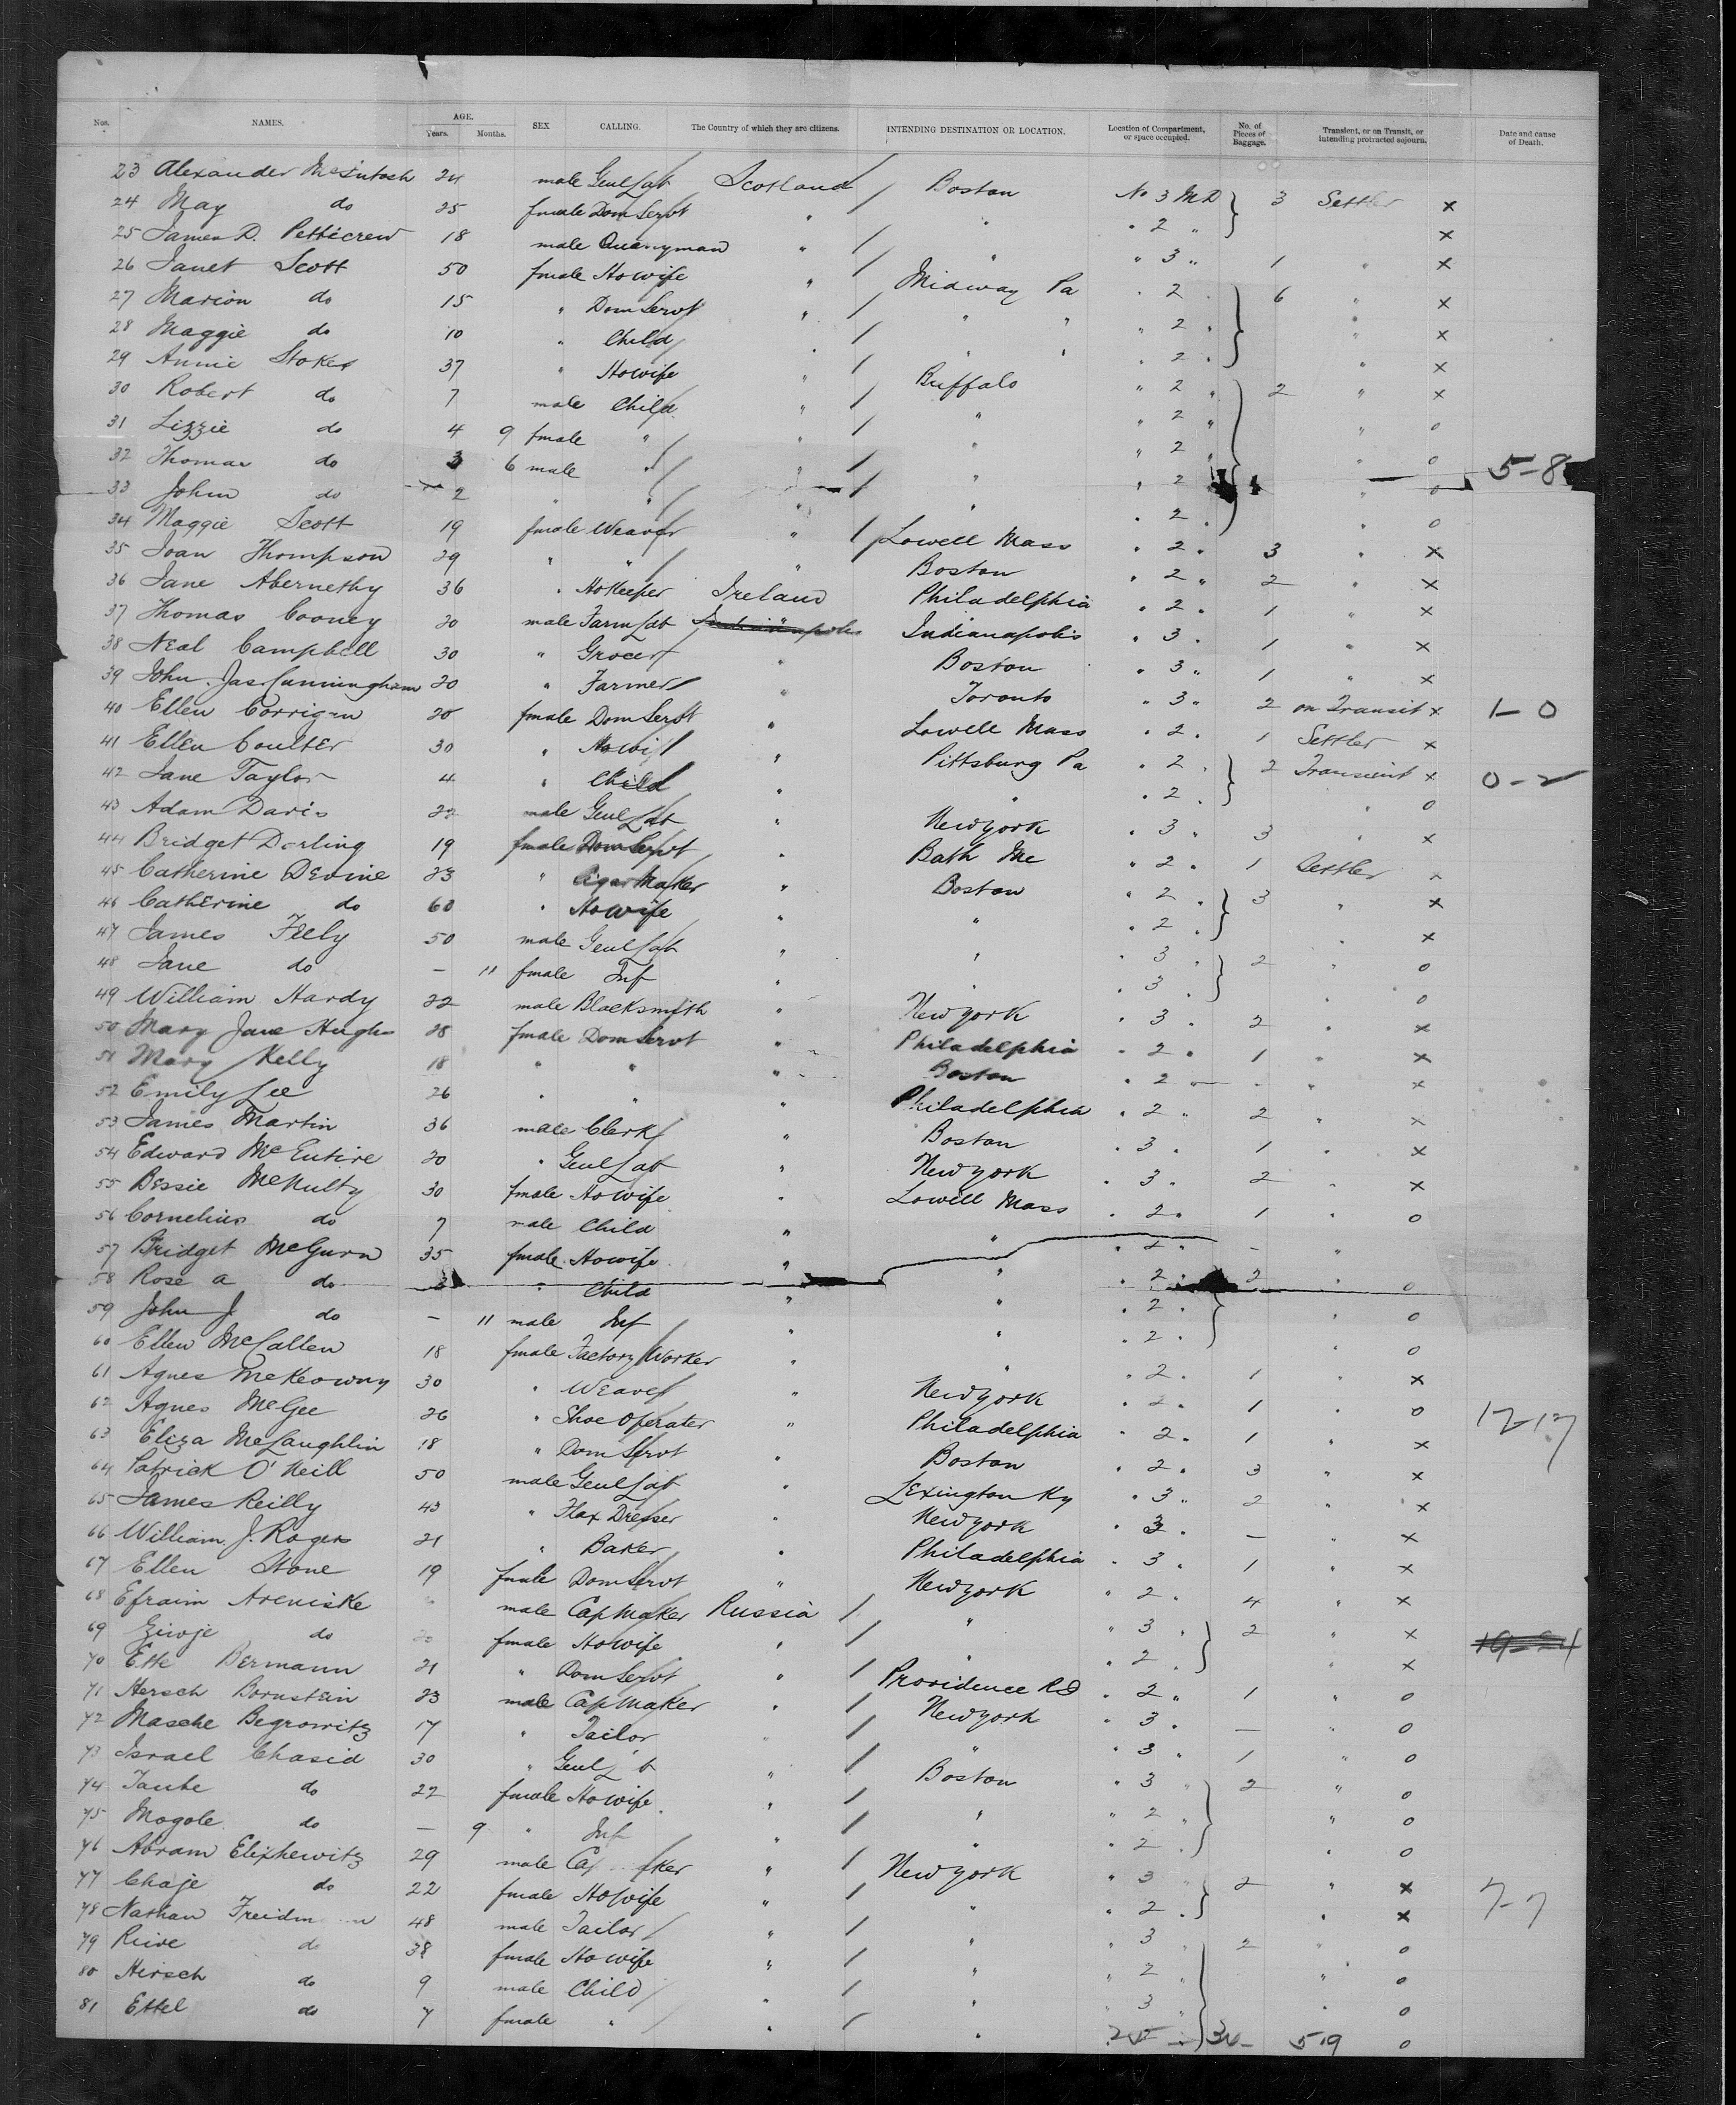 Nos. NAMES. AGE. Years. Months. SEX CALLING. The Country of which they are citizens. INTENDING DESTINATION OR LOCATION. Location of Compartment, or space occupied. No. of Pieces of Baggage. Transient, or on Transit, or intending protracted sojourn. Date and cause of Death.
23 Alexander McIntosh 24 male Genl Lab Scotland Boston No 3 MD 3 Settler x
24 May do 25 fmale Dom Servt " " " 2 " x
25 James D. Petticrew 18 male Quarryman " " " 3 " 1 " x
26 Janet Scott 50 fmale Howife " Midway Pa " 2 " 6 " x
27 Marion do 15 " Dom Servt " " " " 2 " " x
28 Maggie do 10 " Child " " " " 2 " " x
29 Annie Stokes 37 " Howife " Buffalo " 2 " 2 " x
30 Robert do 7 male Child " " " 2 " " o
31 Lizzie do 4 9 fmale " " " " 2 " " o
32 Thomas do 3 6 male " " " " 2 " " o 5-8
33 John do 2 " " " " " 2 " " o
34 Maggie Scott 19 fmale Weaver " Lowell Mass " 2 " 3 " x
35 Joan Thompson 29 " " " Boston " 2 " 2 " x
36 Jane Abernethy 36 " Hokeeper Ireland Philadelphia " 2 " 1 " x
37 Thomas Cooney 20 male Farm Lab Indianapolis " 3 " 1 " x
38 Neal Campbell 30 " Grocer " Boston " 3 " 1 " x
39 John Jas Cunningham 20 " Farmer " Toronto " 3 " 2 on Transit x 1-0
40 Ellen Corrigan 20 fmale Dom Servt " Lowell Mass " 2 " 1 Settler x
41 Ellen Coulter 30 " Howif " Pittsburg Pa " 2 " 2 Transient x 0-2
42 Jane Taylor 4 " Child " " " 2 " " o
43 Adam Davis 22 male Genl Lab " New york " 3 " 3 " x
44 Bridget Darling 19 fmale Dom Servt " Bath Me " 2 " 1 Settler x
45 Catherine Devine 23 " Cigar Maker " Boston " 2 " 3 " x
46 Catherine do 60 " Howife " " " 2 " " x
47 James Feely 50 male Genl Lab " " " 3 " 2 " o
48 Jane do - 11 fmale Inf " " " 3 " " o
49 William Hardy 22 male Blacksmith " New york " 3 " 2 " x
50 Mary Jane Hughs 28 fmale Dom Servt " Philadelphia " 2 " 1 " x
51 Mary Kelly 18 " " " Boston " 2 " - " x
52 Emily Lee 26 " " " Philadelphia " 2 " 2 " x
53 James Martin 36 male Clerk " Boston " 3 " 1 " x
54 Edward McEntire 20 " Genl Lab " New york " 3 " 2 " x
55 Bessie McNulty 30 fmale Howife " Lowell Mass " 2 " 1 " o
56 Cornelius do 7 male Child " " " 2 " - "
57 Bridget McGurn 35 fmale Howife " " " 2 " 2 " o
58 Rose a do 3 " Child " " " 2 " " o
59 John J do - 11 male Inf " " " 2 " " o
60 Ellen McCallen 18 fmale Factory Worker " " " 2 " 1 " x
61 Agnes McKeowny 30 " Weaver " New york " 2 " 1 " o
62 Agnes McGee 26 " Shoe Operater " Philadelphia " 2 " 1 " x 12-17
63 Eliza McLaughlin 18 " Dom Servt " Boston " 2 " 3 " x
64 Patrick O'Neill 50 male Genl Lab " Lexington Ky " 3 " 2 " x
65 James Reilly 43 " Flax Dresser " New york " 3 " - " x
66 William J. Rogers 21 " Baker " Philadelphia " 3 " 1 " x
67 Ellen Stone 19 fmale Dom Servt " New york " 2 " 4 " x
68 Efraim Areniske male Cap Maker Russia " " 3 " 2 " x
69 Ziwje do 20 fmale Howife " " " 2 " " x 19-24
70 Ette Bermann 21 " Dom Servt " Providence RI " 2 " 1 " o
71 Hersch Bornstein 23 male Cap Maker " New york " 3 " - " o
72 Masche Begrowitz 17 " Tailor " " " 3 " 1 " o
73 Israel Chasid 30 " Genl Lb " Boston " 3 " 2 " o
74 Taube do 22 fmale Howife " " " 2 " " o
75 Mogole do - 9 " Inf " " " 2 " " o
76 Abram Elixhewitz 29 male Ca ker " New york " 3 " 2 " x
77 Chaje do 22 fmale Howife " " " 2 " " x 7-7
78 Nathan Freidm n 48 male Tailor " " " 3 " 2 " o
79 Reive do 38 fmale Howife " " " 2 " " o
80 Hirsch do 9 male Child " " " 3 " " o
81 Ettel do 7 fmale " " " 2 36 519 o